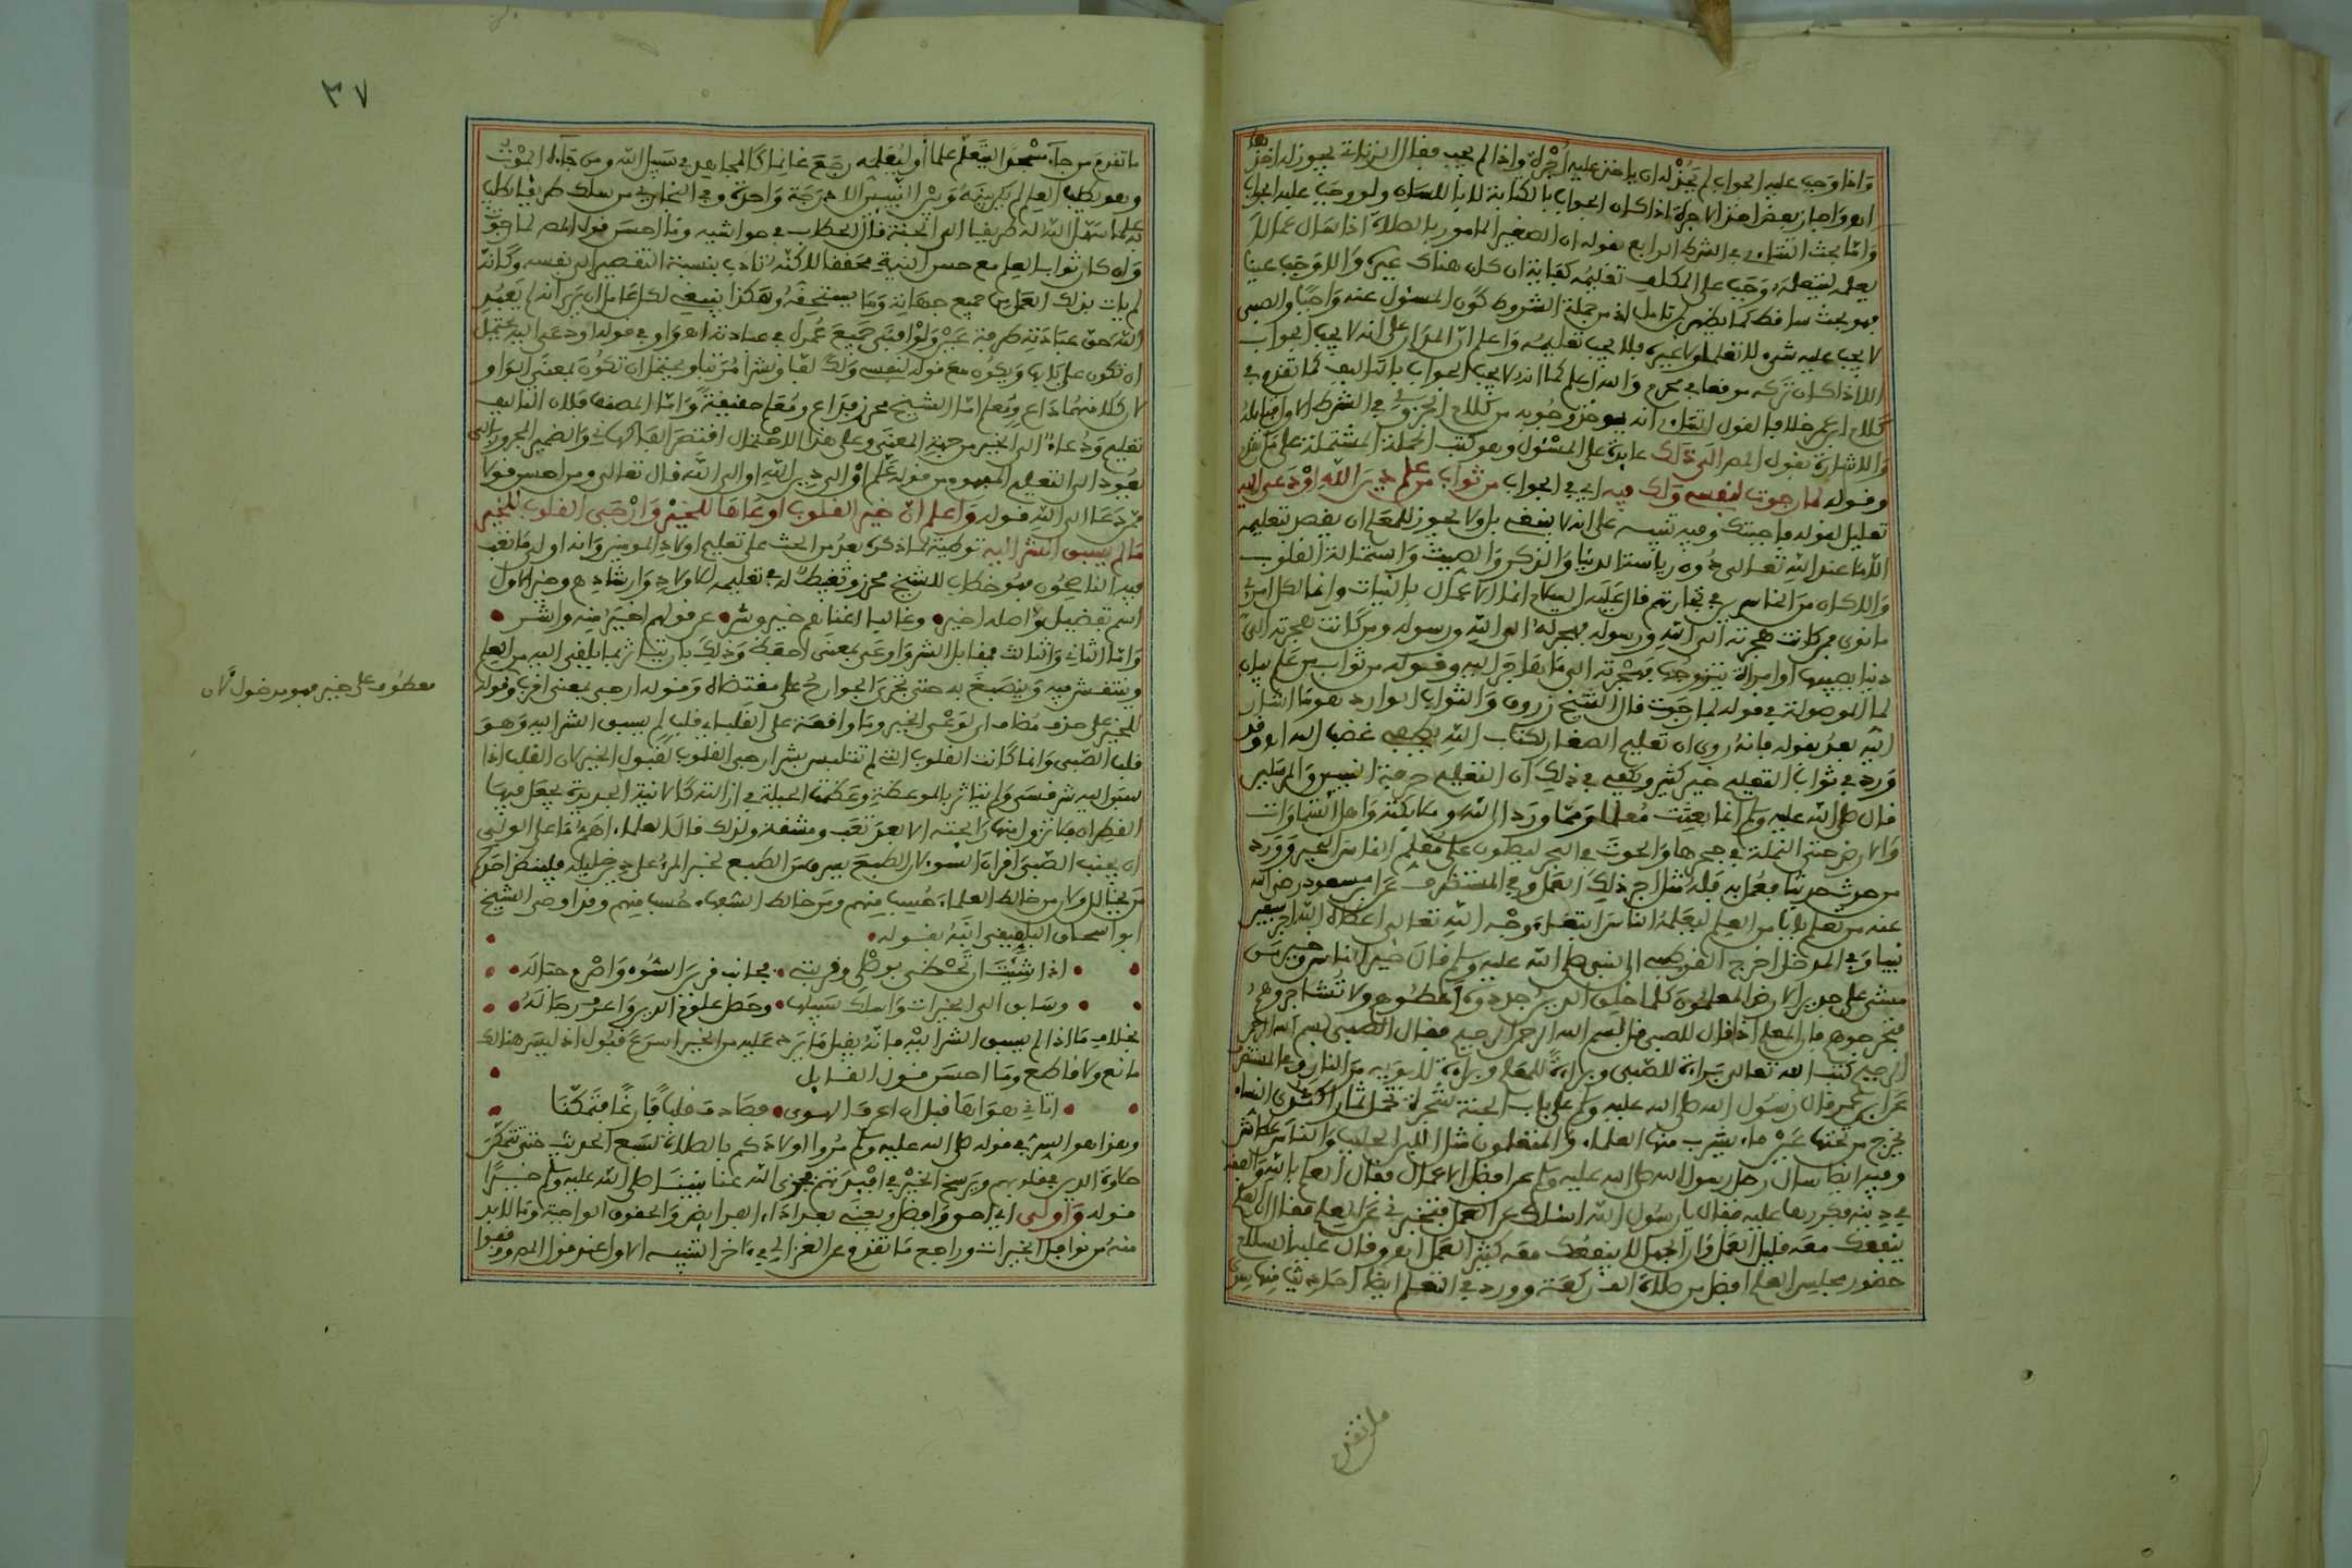 واذا وجب عليه الجواب لم يجز له ان ياخذ عليه اجرة واذا لم يجب فقال الزناتي يجوز له اخذها
اهـ واجاز بعض اخذ الاجرة اذا كان الجواب بالكتابة لا باللسان ولو وجب عليه الجواب
واما بحث التتاءي في الشرط الرابع بقوله ان الصغير المامور بالصلاة اذا سال عما لا
يعلمه ليتعلمه وجب على المكلف تعليمه كفاية ان كان هناك غيره والا وجب عينا
فهو بحث ساقط كما يظهر لمن تامل اذ من جملة الشروط كون المسئول عنه واجبا والصبي
لا يجب عليه شيء لا تعلم ولا غيره فلا يجب تعليمه واعلم ان المدار على انه لا يجب الجواب
الا اذا كان تركه موقعا في محرم والله اعلم كما انه لا يجب الجواب بالتاليف كما تقدم في
كلام ابن عمر خلافا لقول التتاءي انه يوخذ وجوبه من كلام الجزولي في الشرط الاول قبله
والاشارة بقول المص الى ذلك عايدة على المسئول وهو كتب الجملة المشتملة على ما تقدم
وقوله لما رجوت لنفسي ولك فيه اي في الجواب من ثواب من علم دين الله او دعى اليه
تعليل لقوله فاجبتك وفيه تنبيه على انه لا ينبغي بل ولا يجوز للمعلم ان يقصد بتعليمه
الا ما عند الله تعالى دون رياسة الدنيا والذكر والصيت واستمالة القلوب
والا كان من الخاسرين في تجارتهم قال عليه السلام انما الاعمال بالنيات وانما لكل امرئ
ما نوى فمن كانت هجرته الى الله ورسوله فهجرته الى الله ورسوله ومن كانت هجرته الى
دنيا يصيبها او امراة يتزوجها فهجرته الى ما هاجر اليه وقوله من ثواب من علم بيان
لما الموصولة في قوله لما رجوت قال الشيخ زروق والثواب الوارد هو ما اشار
اليه بعد بقوله فانه روي ان تعليم الصغار لكتاب الله يطفي غضب الله اهـ وقد
ورد في ثواب التعليم خير كثير ويكفي في ذلك ان التعليم حرفة النبيين والمرسلين
قال صلى الله عليه وسلم انما بعثت معلما ومما ورد ان الله وملايكته واهل السماوات
والارض حتى النملة في جحرها والحوت في البحر ليصلون على معلم الناس الخير وورد
من حدث حديثا فعمل به فله مثل اجر ذلك العمل وفي المستطرف عن ابن مسعود رضي الله
عنه من تعلم بابا من العلم ليعلمه الناس ابتغاء وجه الله تعالى اعطاه الله اجر سبعين
نبيا وفي المدخل اخرج القرطبي ان النبي صلى الله عليه وسلم قال خير الناس وخير من
مشى على جديد الارض المعلمون كلما خلق الدين جددوه اعطوهم ولا تستاجروهم
فتحرجوهم فان المعلم اذا قال للصبي قل بسم الله الرحمن الرحيم فقال الصبي بسم الله الرحمن
الرحيم كتب الله تعالى براءة للصبي وبراءة للمعلم وبراءة لابويه من النار وفي
عن ابن عمر قال رسول الله صلى الله عليه وسلم على باب الجنة شجرة تحمل ثمارا كثدي النساء
يخرج من تحتها عين ماء يشرب منها العلماء والمتعلمون مثل اللبن الحليب والناس عطاش
وفيه ايضا سال رجل رسول الله صلى الله عليه وسلم عن افضل الاعمال فقال العلم بالله والفقه
في دينه فكررها عليه فقال يا رسول الله اسالك عن العمل فتخبرني عن العلم فقال ان العلم
ينفعك معه قليل العمل وان الجهل لا ينفعك معه كثير العمل اهـ وقال عليه السلام
حضور مجلس العلم افضل من صلاة الف ركعة وورد في التعلم ايضا احاديث منها
ما تقدم
٣٧
ما تقدم من جاء مسجدنا ليتعلم علما او ليعلمه رجع غانما كالمجاهد في سبيل الله ومن جاءه الموت
وهو يطلب العلم لم يكن بينه وبين النبيين الا درجة واحدة وفي البخاري من سلك طريقا يطلب
به علما سهل الله له طريقا الى الجنة قال الحطاب في حواشيه وما احسن قول المص لما رجوت
وان كان ثواب العلم مع حسن النية محققا لاكنه تادب بنسبة التقصير الى نفسه وكانه
لم يات بذلك العمل من جميع جهاته وما يستحقه وهكذا ينبغي لكل عامل ان يرى انه لم يعبد
الله حق عبادته طرفة عين ولو افنى جميع عمره في عبادته اهـ واو في قوله او دعى اليه يحتمل
ان تكون على بابها ويكون مع قوله لنفسي ولك لفا ونشرا مرتبا ويحتمل ان تكون بمعنى الواو
لان كلا منهما داع ومعلم اما الشيخ محرز فداع ومعلم حقيقة واما المصنف فلان التاليف
تعليم ودعاء الى الخير من جهة المعنى وعلى هذا الاحتمال اقتصر الفاكهاني والضمير المجرور بالى
يعود الى التعليم المفهوم من قوله علم او الى دين الله او الى الله قال تعالى ومن احسن قولا
ممن دعا الى الله قوله واعلم ان خير القلوب اوعاها للخير وارجى القلوب للخير
ما لم يسبق الشر اليه توطية لما ذكره بعد من الحث على تعليم اولاد المومنين وانه اولى ما نصب
فيه الناصحون فهو خطاب للشيخ محرز وتغبيط له في تعليمه للاولاد وارشادهم وخير الاول
اسم تفضيل واصله اخير • وغالبا اغناهم خير وشر • عن قولهم اخير منه واشر •
واما الثاني والثالث فمقابل الشر واوعى بمعنى احفظ وذلك بان يتاثر بما يلقى اليه من العلم
وينتقش فيه وينصبغ به حتى تجري الجوارح على مقتضاه وقوله ارجى بمعنى اقرب وقوله
للخير على حذف مضاف اي لوعي الخير وما واقعة على القلب اي قلب لم يسبق الشر اليه وهو
قلب الصبي وانما كانت القلوب التي لم تتلبس بشر ارجى القلوب لقبول الخير لان القلب اذا
سبق اليه شر قسى ولم يتاثر بالموعظة وعظمت الحيلة في ازالته كالانية الجديدة يجعل فيها
القطران فلا تزول منها رايحته الا بعد تعب ومشقة ولذلك قال العلماء اهم ما على الولي
ان يجنب الصبي اقران السوء لان الطبع يسرق من الطبع لخبر المرء على دين خليله فلينظر احدكم
من يخالل ولان من خالط العلماء حسب منهم ومن خالط السفهاء حسب منهم وقد اوصى الشيخ
ابو اسحاق ابنه بقوله •
• اذا شئت ان تحظى بوصلي وقربتي • فجانب قرين السوء واصرم حباله •
• وسابق الى الخيرات واسلك سبيلها • وحصل علوم الدين واعرف رجاله •
بخلاف ما اذا لم يسبق الشر اليه فانه يقبل ما يرد عليه من الخير اسرع قبول اذ ليس هنالك
مانع ولا قاطع وما احسن قول القايل
• اتاني هواها قبل ان اعرف الهوى • فصادف قلبا فارغا فتمكنا •
وهذا هو السر في قوله صلى الله عليه وسلم مروا اولادكم بالصلاة لسبع الحديث حتى تتمكن
حلاوة الدين في قلوبهم ويرسخ الخير في افيدتهم فجزى الله عنا نبينا صلى الله عليه وسلم خيرا
قوله واولى اي احق وافضل يعني بعد اداء الفرايض والحقوق الواجبة وما لا بد
منه من نوافل الخيرات وراجع ما تقدم عن الغزالي في ءاخر التنبيه الاول عند قول المص
معطوف على خبر فهو مدخول لان